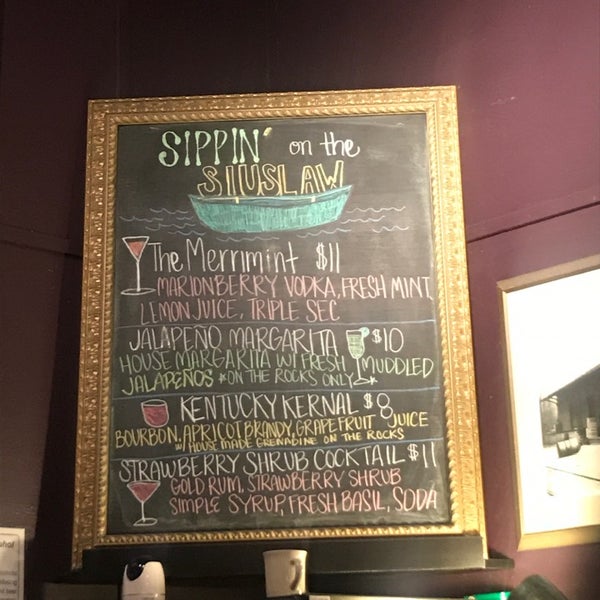 SIPPIN' on the
SIUSLAW
The Merrimint $11
MARIONBERRY VODKA, FRESH MINT,
LEMON JUICE, TRIPLE SEC
JALAPEÑO MARGARITA $10
HOUSE MARGARITA W/ FRESH MUDDLED
JALAPEÑOS *ON THE ROCKS ONLY*
KENTUCKY KERNAL $8
BOURBON, APRICOT BRANDY, GRAPEFRUIT JUICE
W/ HOUSE MADE GRENADINE ON THE ROCKS
STRAWBERRY SHRUB COCKTAIL $11
GOLD RUM, STRAWBERRY SHRUB
SIMPLE SYRUP, FRESH BASIL, SODA